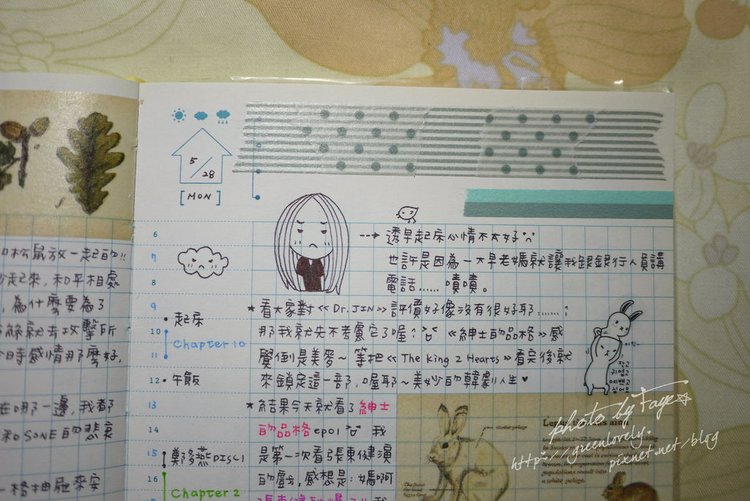 5/28
[MON]
6
7
8
9
10
11
12
13
14
15
16
起床
Chapter 10
午飯
鄭多燕DISC1
Chapter 2
透早起床心情不太好
也許是因為一大早老媽就讓我跟銀行人員講
電話……嘖嘖。
★看大家對《Dr.JIN》評價好像沒有很好耶……
那我就先不考慮它了喔 《紳士的品格》感
覺倒是美麥~等把《The King 2 Hearts》看完後就
來鎖定這一部,喔耶~美妙的韓劇人生♥
★結果今天就看了紳士
的品格ep01 我
是第一次看張東健演
的戲,感想是:媽啊
松鼠放一起的!!
起來,和平相處
為什麼要為了
就去攻擊所
時感情那麼好,
在哪一邊,我都
和SONE的悲哀
photo by Faye
http://greenlovely.
pixnet.net/blog